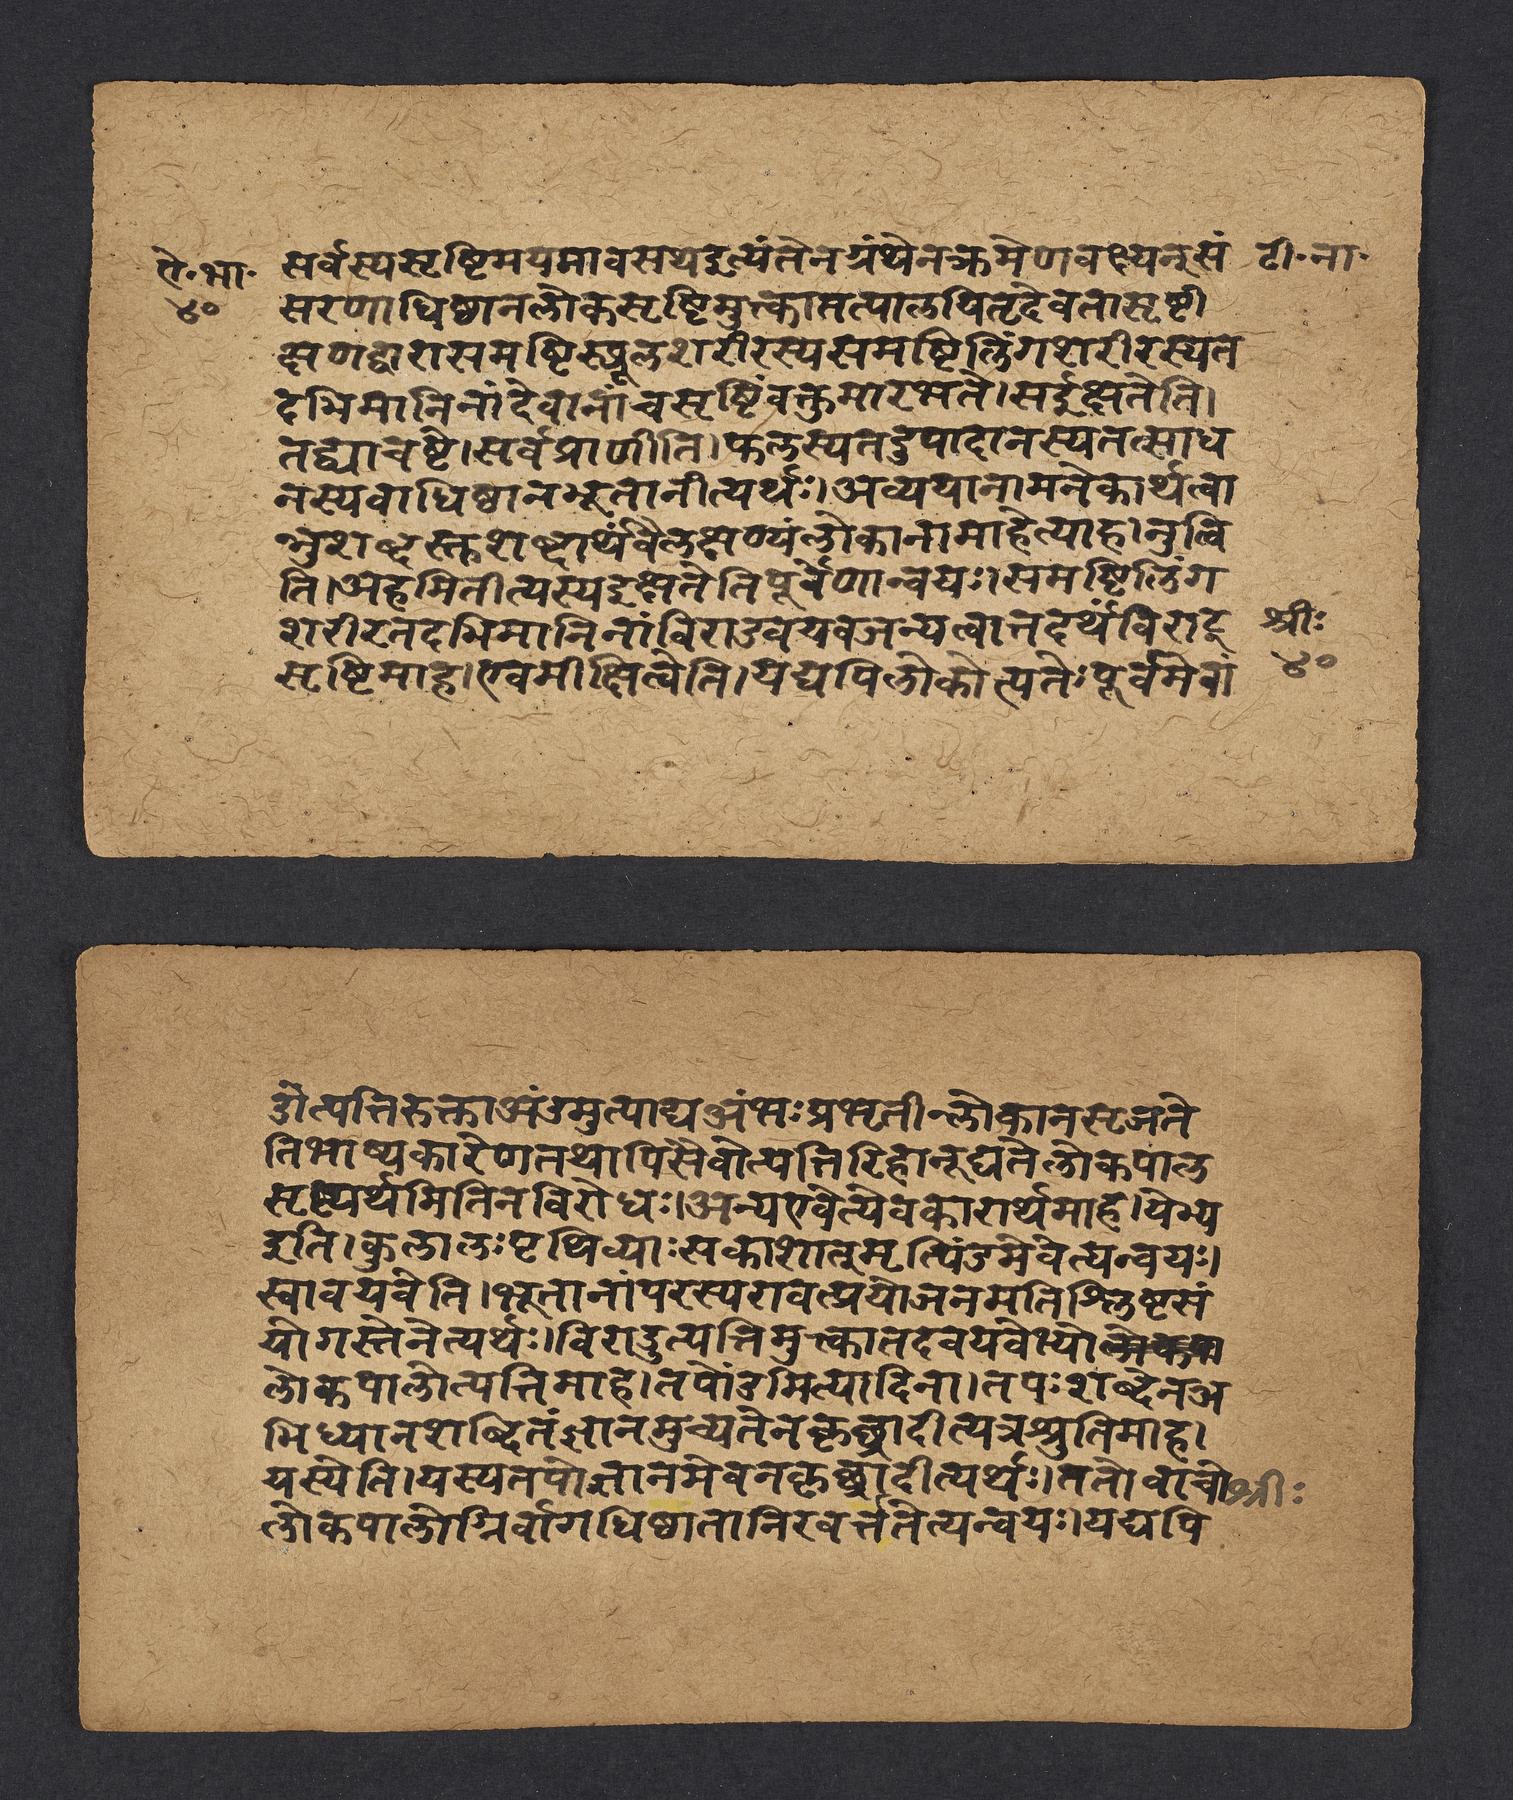 ऐ॰भा॰ सर्वस्यसृष्टिमयमावसथइत्यंतेनग्रंथेनक्रमेणवक्ष्यन्नुसं टी॰ना॰
४० सरणाधिष्ठानलोकसृष्टिमुक्त्कातत्पालयितृदेवतासृष्टी
क्षणद्वारासमष्टिस्थूलशरीरस्यसमष्टिलिंगशरीरस्यत
दभिमानिनांदेवानांचसृष्टिंवक्तुमारभते।सईक्षतेति।
तद्व्याचष्टे।सर्वप्राणीति।फलस्यतदुपादानस्यतत्साध
नस्यवाधिष्ठानभूतानीत्यर्थः।अव्ययानामनेकार्थत्वा
न्नुशब्दस्तुशब्दार्थंवैलक्षण्यंलोकानामाहेत्याह।नुत्वि
ति।अहमितीत्यस्यईक्षतेतिपूर्वेणान्वयः।समष्टिलिंग
शरीरतदभिमानिनांविराडवयवजन्यत्वात्तदर्थंविराट् श्रीः
सृष्टिमाह।एवमीक्षित्वेति।यद्यपिलोकोत्पतेःपूर्वमेवां ४०
डोत्पत्तिरुक्ताअंडमुत्पाद्यअंभःप्रभृतीन्लोकानसृजते
तिभाष्यकारेणतथापिसैवोत्पत्तिरिहानूद्यतेलोकपाल
सृष्ट्यर्थमितिनविरोधः।अन्यएवेत्येवकारार्थमाह।येभ्य
इति।कुलालःपृथिव्याःसकाशात्मृत्पिंडमेवेत्यन्वयः।
स्वावयवेति।भूतानांपरस्परावत्प्रयोजनमतिश्लिष्टसं
योगस्तेनेत्यर्थः।विराडुत्पत्तिमुक्त्कातदवयवेभ्यो
लोकपालोत्पत्तिमाह।तपोंडमित्यादिना।तपःशब्देनअ
भिध्यानशब्दितंज्ञानमुच्यतेनकृच्छ्रादीत्यत्रश्रुतिमाह।
यस्येति।यस्यतपोज्ञानमेवनकृच्छ्रादीत्यर्थः।ततोवाचो श्रीः
लोकपालोग्निर्वागधिष्ठातानिरवर्त्ततेत्यन्वयः।यद्यपि